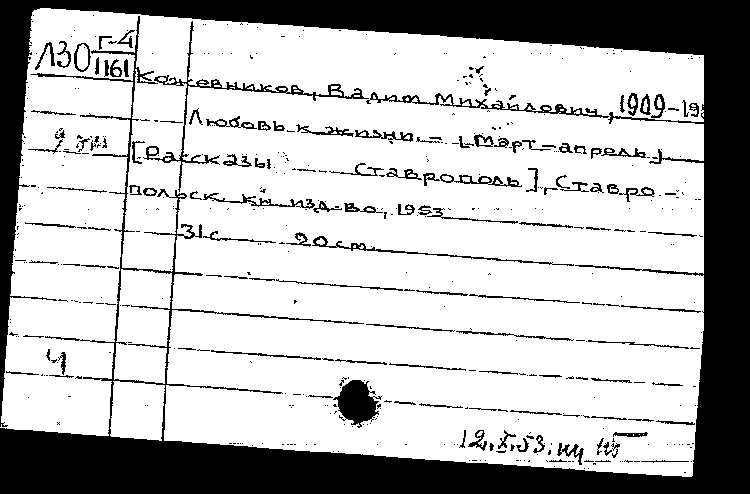 Л30 Г-4/1161
Кожевников, Вадим Михайлович, 1909-198
Любовь к жизни. - [Март-апрель]
[Рассказы Ставрополь], Ставро-
польск. кн. изд-во, 1953
31 с. 20 см.
Ч
12.X.53.